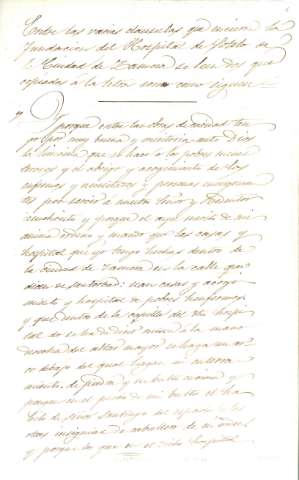 Entre las varias clausulas que encierra la
fundacion del Hospital de Sotelo en
la Ciudad de Zamora se leen dos que
copiadas á la letra son como siguen
Y porque entre las obras de caridad tengo
por muy buena y meritoria ante Dios
la limosna que se hace a los pobres meneste-
rosos y el abrigo y acogimiento de los
enfermos y necesitados y personas
por servir a nuestro Señor y Redentor
Jesuchristo y porque el aya merito de mi
anima ordeno y mando que las casas y
hospital que yo tengo hechas dentro de
la ciudad de Zamora en la calle que
dicen de sean casas y acogi-
miento y hospital de pobres
y que dentro de la capilla del dho hospi-
tal do se ha de decir misa a la mano
derecha del altar mayor se haga un ar-
co debajo del qual hagan mi enterra-
miento de piedra y un bulto encima y
porque en el pecho de mi bulto el ha-
bito de Señor Santiago del espada e las
otras insignias de caballero de
y porque los que en el dicho hospital